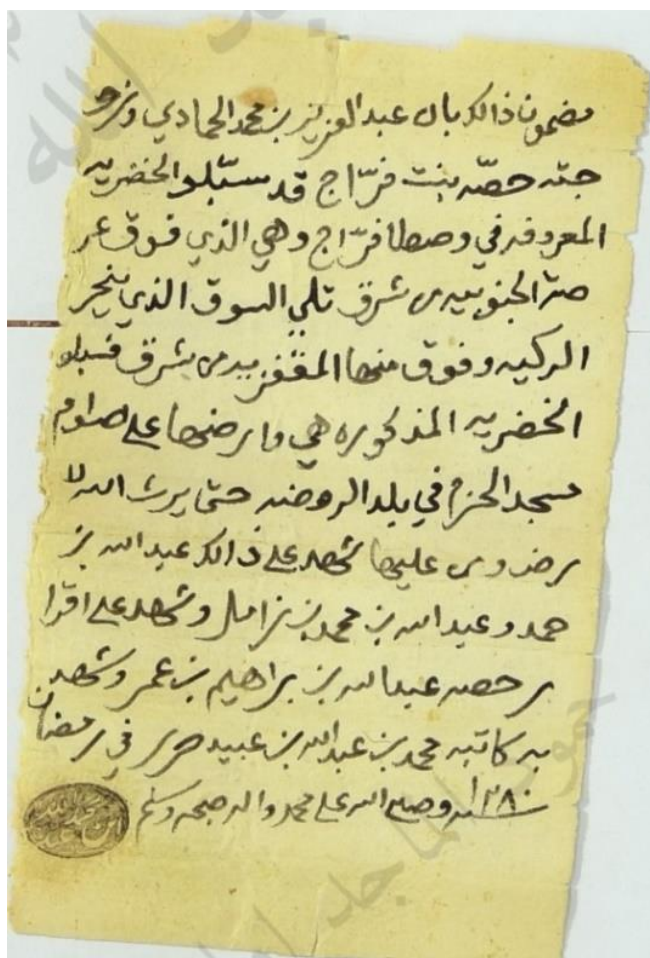 مضمون ذالك بان عبد العزيز بن محمد الحمادي وزو
جته حصه بنت فرّاج قد سبّلو الخضريه
المعروفه في وصطا فرّاج وهي الذي فوق عر
صة الجنوبيه من شرق تلي السوق الذي ينحر
الركيه وفوق منها المقفزيه من شرق فسبلو
الخضريه المذكوره هي وارضها على صوام
مسجد الحزم في بلد الروضه حتى يرث الله لا
رض ومن عليها شهد على ذالك عبد الله بن
حمد وعبد الله بن محمد بن زامل وشهد على اقرا
ر حصه عبد الله بن براهيم بن عمر وشهد
به كاتبه محمد بن عبد الله بن عبيد حرر في رمضان
سنة ١٢٨٠ وصلى الله على محمد واله وصحبه وسلم